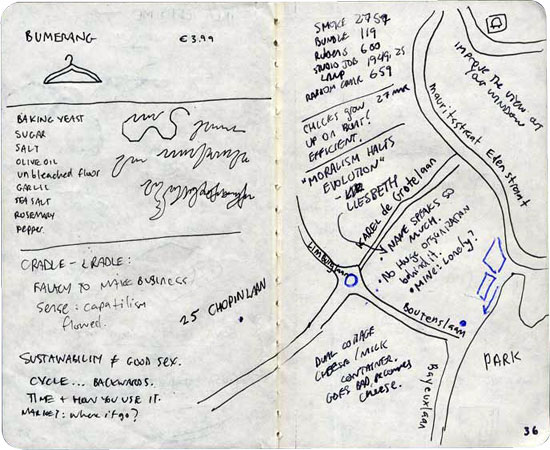 BUMERANG €3.99
BAKING YEAST
SUGAR
SALT
OLIVE OIL
unbleached floor
GARLIC
SEA SALT
ROSEMARY
Pepper.
CRADLE - CRADLE:
FALLACY TO MAKE BUSINESS
sense: capatilism
flawed.
25 CHOPINLAAN
SUSTAINABILITY ≠ GOOD SEX.
CYCLE... BACKWARDS.
TIME + HOW YOU USE IT.
MARKET: where it go?
SMOKE 2759
BUNDLE 119
RUBENS 600
STUDIO JOB 1949,25
LAMP
RANDOM CHAIR 659
CHICKS GROW 27 mar
UP ON BOAT!
EFFICIENT.
"MORALISM HALTS
EVOLUTION"
- LIESBETH
IMPROVE THE VIEW OUT
YOUR WINDOW
Mauritsstraat
Edenstraat
KAREL de Grotelaan
Limburglaan
• NAME SPEAKS SO
MUCH.
• NO HUGE ORGANIZATION
behind it.
• MINE: Lonely?
Boutenslaan
Bayeuxlaan
PARK
DUAL COTTAGE
CHEESE / MILK
CONTAINER.
GOES BAD, BECOMES
CHEESE.
36